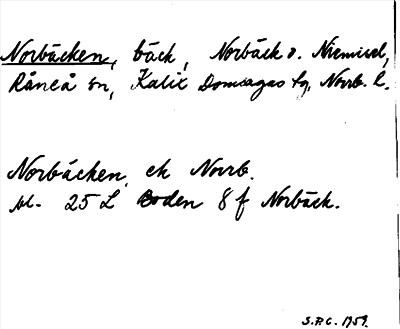 Norbäcken, bäck, Norbäck o. Niemisel,
Råneå sn, Kalix Domsagas tg, Norrb. l.
Norbäcken, ek Norrb.
bl. 25 L Boden 8 f Norbäck.
S.P.C. 1959.